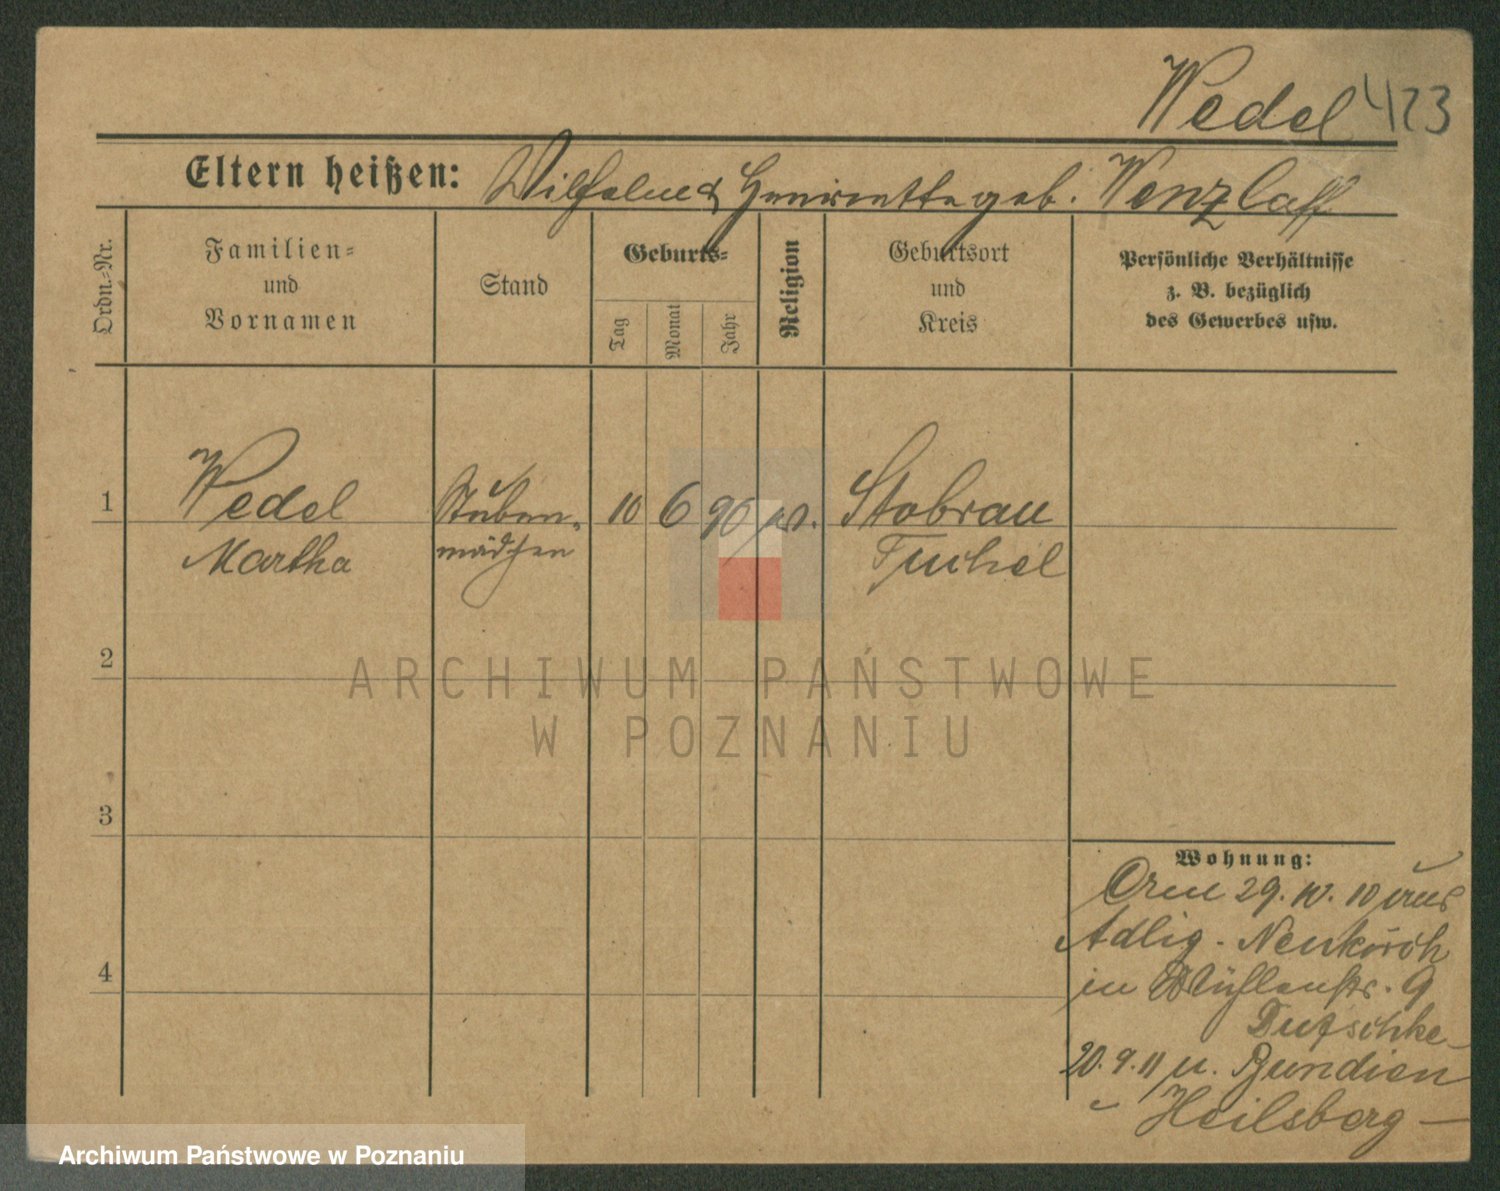 Wedel 423
Eltern heißen: Wilhelm & Henriette geb. Wenzlaff
Ordn.-Nr.
Familien-
und
Vornamen
Stand
Geburts-
Tag
Monat
Jahr
Religion
Geburtsort
und
Kreis
Persönliche Verhältnisse
z. B. bezüglich
des Gewerbes usw.
1
Wedel
Martha
Stuben-
mädchen
10
6
90
ev.
Stobrau
Tuchel
2
ARCHIWUM PAŃSTWOWE
W POZNANIU
3
4
Wohnung:
29. 10. 10 aus
Adlig. Neukirch
in Mühlenstr. 9
20. 9. 11 n.
Heilsberg
Archiwum Państwowe w Poznaniu